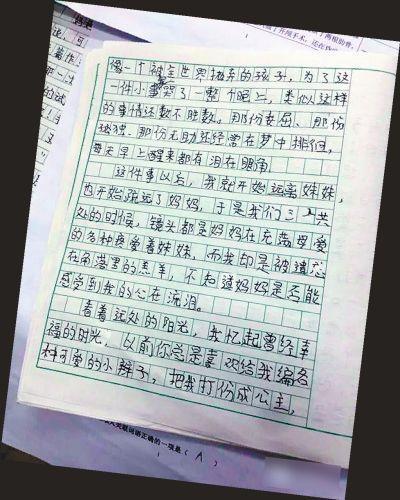 像一个被全世界抛弃的孩子,为了这
一件小事哭了一整个晚上,类似这样
的事情还数不胜数,那份委屈、那份
孤独、那份无助还经常在梦中排徊,
每天早上醒来都有泪在眼角
这件事以后,我就开始远离妹妹,
也开始疏远了妈妈,于是我们三人共
处的时候,镜头都是妈妈在充满母爱
的各种疼爱着妹妹,而我却是被遗忘
在角落里的羔羊,不知道妈妈是否能
感受到我的心在流泪。
看着远处的阳光,我忆起曾经幸
福的时光,以前你总是喜欢给我编各
种可爱的小辫子,把我打份成公主,
词语正确的一项是(A)